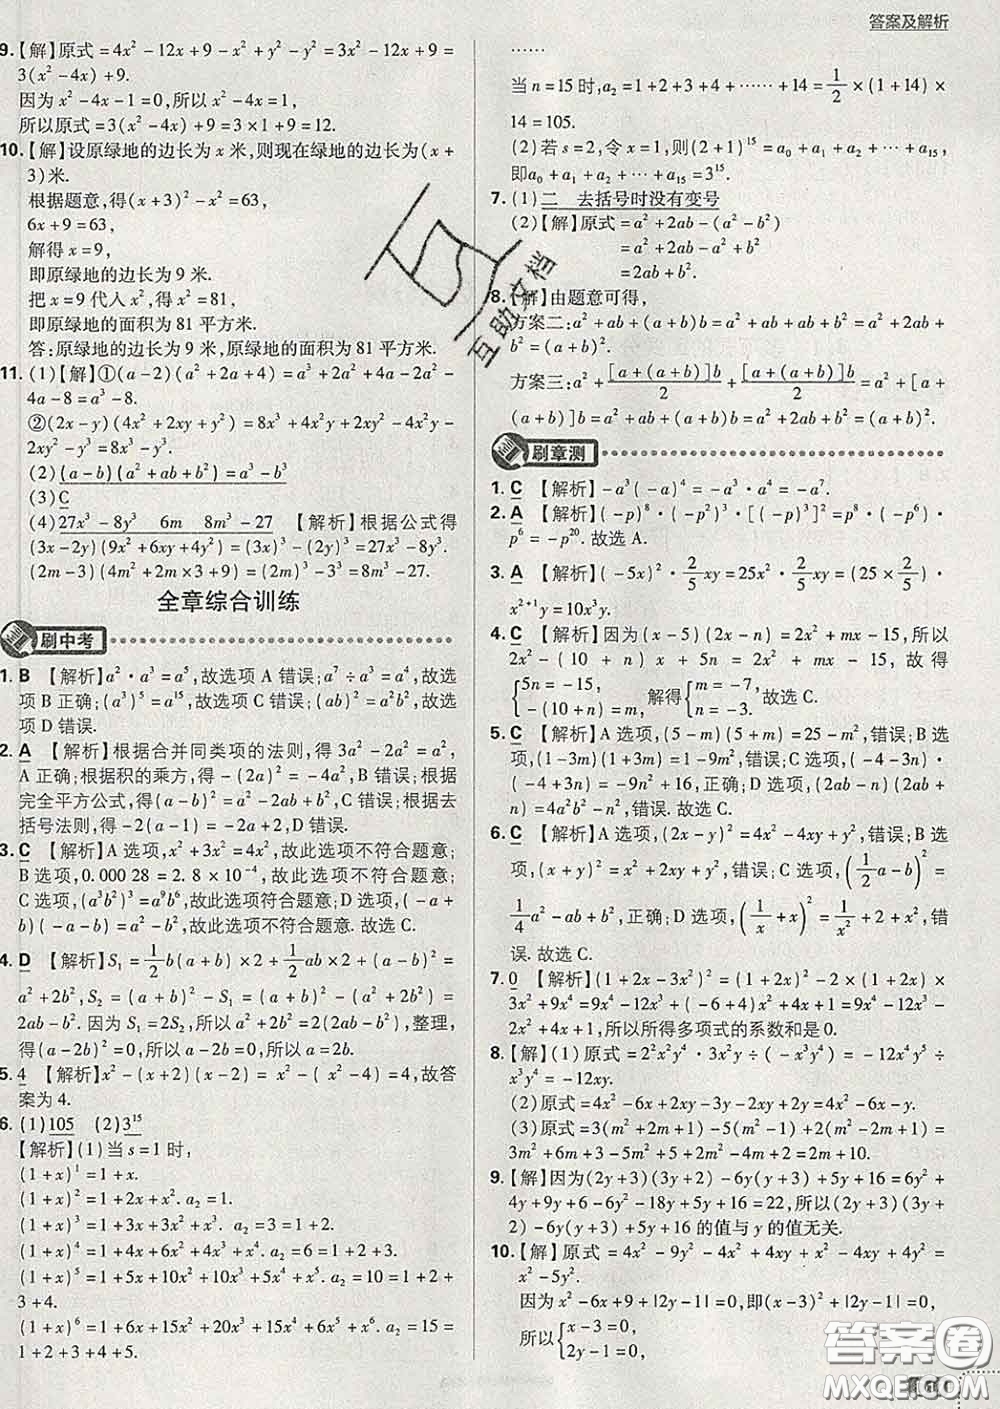 答案及解析
9. 【解】原式 = 4x² - 12x + 9 - x² + y² - y² = 3x² - 12x + 9 =
3(x² - 4x) + 9.
因为 x² - 4x - 1 = 0, 所以 x² - 4x = 1,
所以原式 = 3(x² - 4x) + 9 = 3×1 + 9 = 12.
10. 【解】设原绿地的边长为 x 米, 则现在绿地的边长为(x +
3)米.
根据题意, 得 (x+3)² - x² = 63,
6x + 9 = 63,
解得 x = 9,
即原绿地的边长为 9 米.
把 x = 9 代入 x², 得 x² = 81,
即原绿地的面积为 81 平方米.
答: 原绿地的边长为 9 米, 原绿地的面积为 81 平方米.
11. (1)【解】①(a-2)(a²+2a+4) = a³ + 2a² + 4a - 2a² -
4a - 8 = a³ - 8.
②(2x-y)(4x²+2xy+y²) = 8x³ + 4x²y + 2xy² - 4x²y -
2xy² - y³ = 8x³ - y³.
(2) (a-b)(a²+ab+b²) = a³ - b³
(3) C
(4) 27x³ - 8y³ 6m 8m³ - 27 【解析】根据公式得
(3x-2y)(9x²+6xy+4y²) = (3x)³ - (2y)³ = 27x³ - 8y³.
(2m-3)(4m²+2m×3+9) = (2m)³ - 3³ = 8m³ - 27.
全章综合训练
刷中考
1. B 【解析】a²·a³ = a⁵, 故选项 A 错误; a⁷÷a³ = a⁴, 故选
项 B 正确; (a³)⁵ = a¹⁵, 故选项 C 错误; (ab)² = a²b², 故选
项 D 错误.
2. A 【解析】根据合并同类项的法则, 得 3a² - 2a² = a²,
A 正确; 根据积的乘方, 得 -(2a)² = -4a², B 错误; 根据
完全平方公式, 得(a-b)² = a² - 2ab + b², C 错误; 根据去
括号法则, 得 -2(a-1) = -2a + 2, D 错误.
3. C 【解析】A 选项, x² + 3x² = 4x², 故此选项不符合题意;
B 选项, 0.000 28 = 2.8×10⁻⁴, 故此选项不符合题意;
C 选项, (a³b²)³ = a⁹b⁶, 故此选项符合题意; D 选项, (-a+
b)(-a-b) = a² - b², 故此选项不符合题意.
4. D 【解析】S₁ = 1/2 b(a+b)×2 + 1/2 ab×2 + (a-b)² =
a² + 2b², S₂ = (a+b)² - S₁ = (a+b)² - (a²+2b²) =
2ab - b². 因为 S₁ = 2S₂, 所以 a² + 2b² = 2(2ab - b²), 整理,
得(a-2b)² = 0, 所以 a - 2b = 0, 所以 a = 2b.
5. 4 【解析】x² - (x+2)(x-2) = x² - (x²-4) = 4, 故答
案为 4.
6. (1) 105 (2) 3¹⁵
【解析】(1) 当 s = 1 时,
(1+x)¹ = 1 + x.
(1+x)² = 1 + 2x + x². a₂ = 1.
(1+x)³ = 1 + 3x + 3x² + x³. a₂ = 3 = 1 + 2.
(1+x)⁴ = 1 + 4x + 6x² + 4x³ + x⁴. a₂ = 6 = 1 + 2 + 3.
(1+x)⁵ = 1 + 5x + 10x² + 10x³ + 5x⁴ + x⁵. a₂ = 10 = 1 + 2 +
3 + 4.
(1+x)⁶ = 1 + 6x + 15x² + 20x³ + 15x⁴ + 6x⁵ + x⁶. a₂ = 15 =
1 + 2 + 3 + 4 + 5.
……
当 n = 15 时, a₂ = 1 + 2 + 3 + 4 + …… + 14 = 1/2 × (1+14) ×
14 = 105.
(2) 若 s = 2, 令 x = 1, 则 (2+1)¹⁵ = a₀ + a₁ + a₂ + … + a₁₅,
即 a₀ + a₁ + a₂ + … + a₁₅ = 3¹⁵.
7. (1) 二 去括号时没有变号
(2)【解】原式 = a² + 2ab - (a² - b²)
= a² + 2ab - a² + b²
= 2ab + b².
8. 【解】由题意可得,
方案二: a² + ab + (a+b)b = a² + ab + ab + b² = a² + 2ab
+ b² = (a+b)².
方案三: a² + [a+(a+b)]b/2 + [a+(a+b)]b/2 = a² + [a +
(a+b)]b = a² + ab + (a+b)b = a² + 2ab + b² = (a+b)².
刷章测
1. C 【解析】-a³(-a)⁴ = -a³·a⁴ = -a⁷.
2. A 【解析】(-p)⁸·(-p²)³·[(-p)³]² = p⁸·(-p⁶)·
p⁶ = -p²⁰. 故选 A.
3. A 【解析】(-5x)²·2/5 xy = 25x²·2/5 xy = (25×2/5)·
x²⁺¹y = 10x³y.
4. C 【解析】因为(x-5)(2x-n) = 2x² + mx - 15, 所以
2x² - (10+n)x + 5n = 2x² + mx - 15, 故得
{5n = -15, -(10+n) = m, 解得{m = -7, n = -3. 故选 C.
5. C 【解析】A 选项, (5-m)(5+m) = 25 - m², 错误; B 选
项, (1-3m)(1+3m) = 1 - 9m², 错误; C 选项, (-4-3n)·
(-4+3n) = -9n² + 16, 正确; D 选项, (2ab-n)(2ab+
n) = 4a²b² - n², 错误. 故选 C.
6. C 【解析】A 选项, (2x-y)² = 4x² - 4xy + y², 错误; B 选
项, (x+y)² = x² + 2xy + y², 错误; C 选项, (1/2 a - b)² =
1/4 a² - ab + b², 正确; D 选项, (1/x + x)² = 1/x² + 2 + x², 错
误. 故选 C.
7. 0 【解析】(1+2x-3x²)² = (1+2x)² - 2×(1+2x)×
3x² + 9x⁴ = 9x⁴ - 12x³ + (-6+4)x² + 4x + 1 = 9x⁴ - 12x³ -
2x² + 4x + 1, 所以所得多项式的系数和是 0.
8. 【解】(1) 原式 = 2²x²y⁴·3x²y÷(-x³y⁴) = -12x⁴y⁵÷
x³y⁴ = -12xy.
(2) 原式 = 4x² - 6x + 2xy - 3y - 2xy + 2y = 4x² - 6x - y.
(3) 原式 = 5(m²-1) - 2(m²-1) + 2(m²-2m+1) =
3m² + 6m + 3 - 5m² + 5 + 2m² - 4m + 2 = 2m + 10.
9. 【解】因为(2y+3)(3y+2) - 6y(y+3) + 5y + 16 = 6y² +
4y + 9y + 6 - 6y² - 18y + 5y + 16 = 22, 所以(2y+3)(3y+
2) - 6y(y+3) + 5y + 16 的值与 y 的值无关.
10. 【解】原式 = 4x² - 9y² - 4x² + 4xy + x² - 4xy + 4y² =
x² - 5y².
因为 x² - 6x + 9 + |2y-1| = 0, 即(x-3)² + |2y-1| = 0,
所以{x - 3 = 0, 2y - 1 = 0,
互助文档
答案圈
MXQE.COM